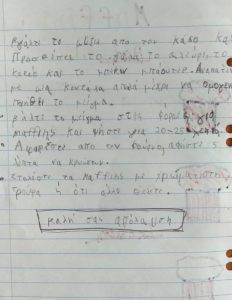 βγάλτε το μείγμα απο τον κάδο και
Προσθέστε το γάλα το αλεύρι, το
κακαο και το μπέικιν πάουντερ. Ανακατέ
με μια κουταλα απαλά μέχρι να ομογεν
ποιηθεί το μείγμα.
βάλτε το μείγμα στις φόρμες για
maffins και ψήστε για 20-25 λεπτά.
Αφαιρέστε απο την φουρνο αφήστε 5
λεπτα να κρυωσουν.
στολίστε τα maffins με χρωματιστη
τρουφα ή ότι αλλο θέλετε.
καλή σας απόλαυση